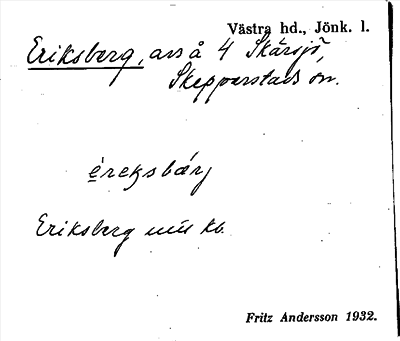 Västra hd., Jönk. l.
Eriksberg, avs å 4 Skärsjö,
Skepperstads sn.
ereksbärj
Eriksberg enl kb.
Fritz Andersson 1932.